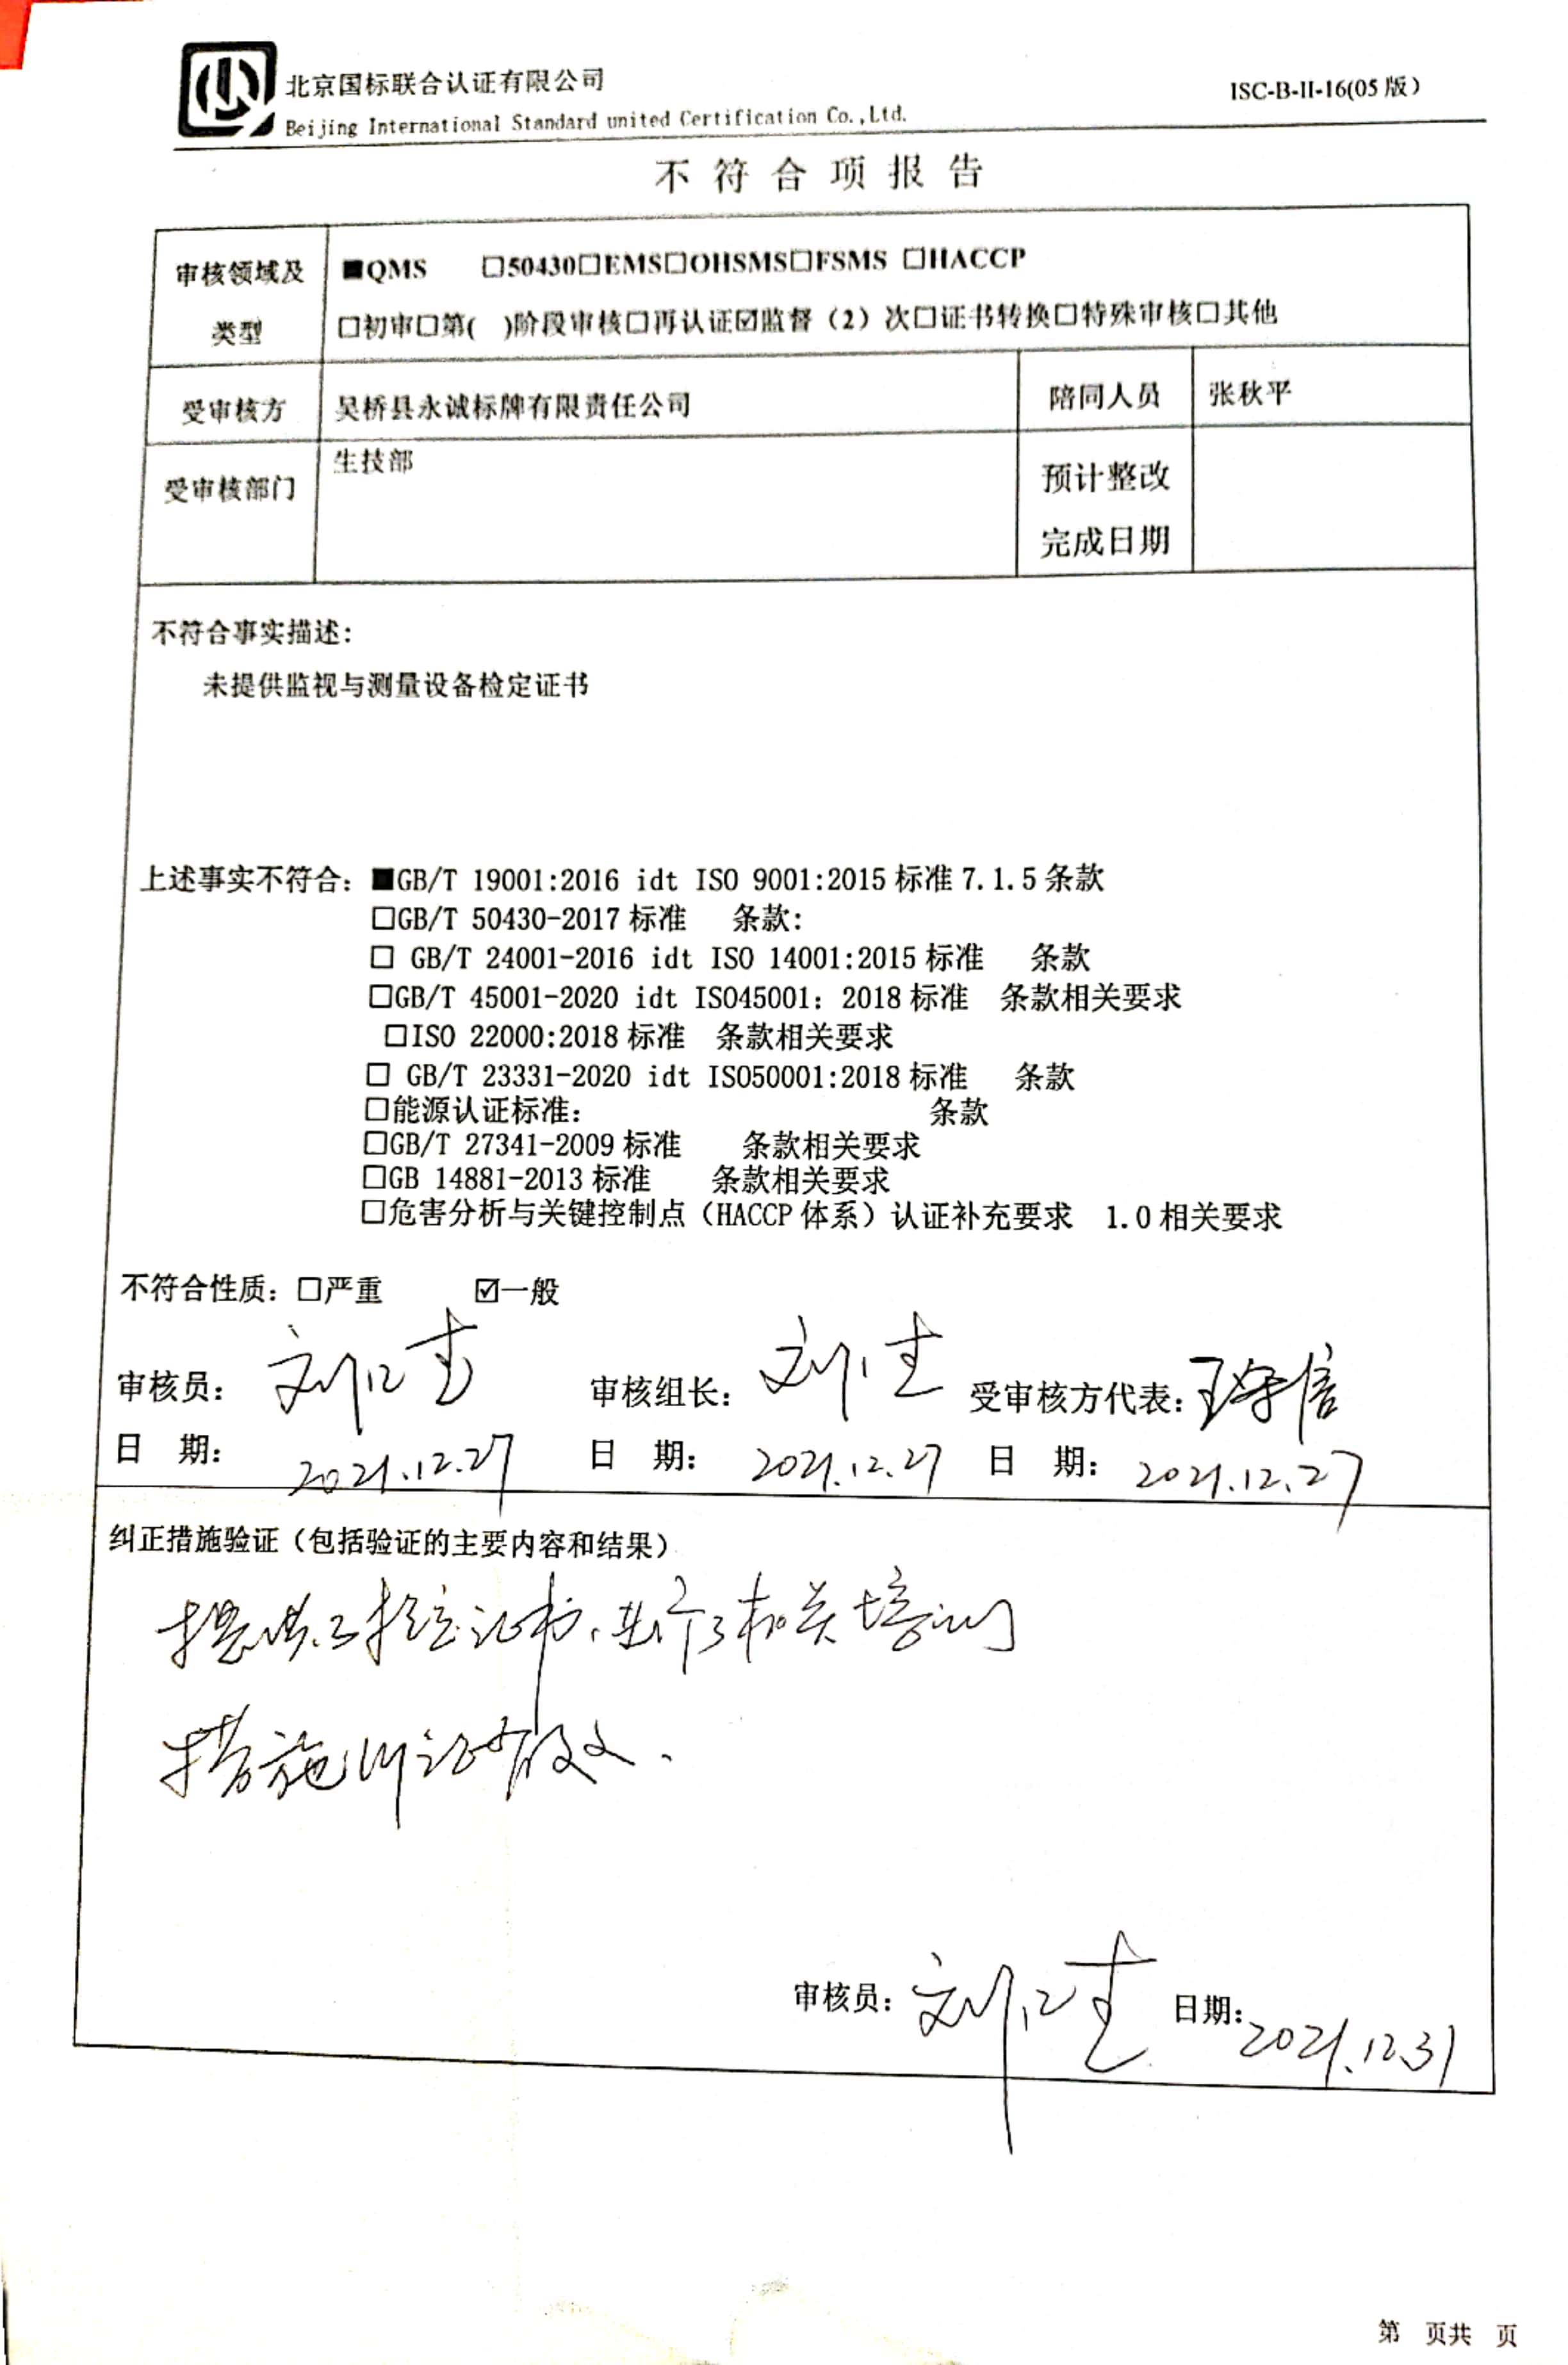 北京国标联合认证有限公司
Beijing International Standard united Certification Co.,Ltd.
ISC-B-II-16(05版)
不符合项报告
审核领域及类型
■QMS □50430□EMS□OHSMS□FSMS □HACCP
□初审□第( )阶段审核□再认证☑监督（2）次□证书转换□特殊审核□其他
受审核方 吴桥县永诚标牌有限责任公司 陪同人员 张秋平
受审核部门 生技部 预计整改完成日期
不符合事实描述：
未提供监视与测量设备检定证书
上述事实不符合：■GB/T 19001:2016 idt ISO 9001:2015标准7.1.5条款
□GB/T 50430-2017标准 条款：
□ GB/T 24001-2016 idt ISO 14001:2015标准 条款
□GB/T 45001-2020 idt ISO45001：2018标准 条款相关要求
□ISO 22000:2018标准 条款相关要求
□ GB/T 23331-2020 idt ISO50001:2018标准 条款
□能源认证标准： 条款
□GB/T 27341-2009标准 条款相关要求
□GB 14881-2013标准 条款相关要求
□危害分析与关键控制点（HACCP体系）认证补充要求 1.0相关要求
不符合性质：□严重 ☑一般
审核员： 审核组长： 受审核方代表：王守信
日 期：2021.12.27 日 期：2021.12.27 日 期：2021.12.27
纠正措施验证（包括验证的主要内容和结果）
提供了检定证书，进行了相关培训
措施验证有效.
审核员： 日期：2021.12.31
第 页共 页